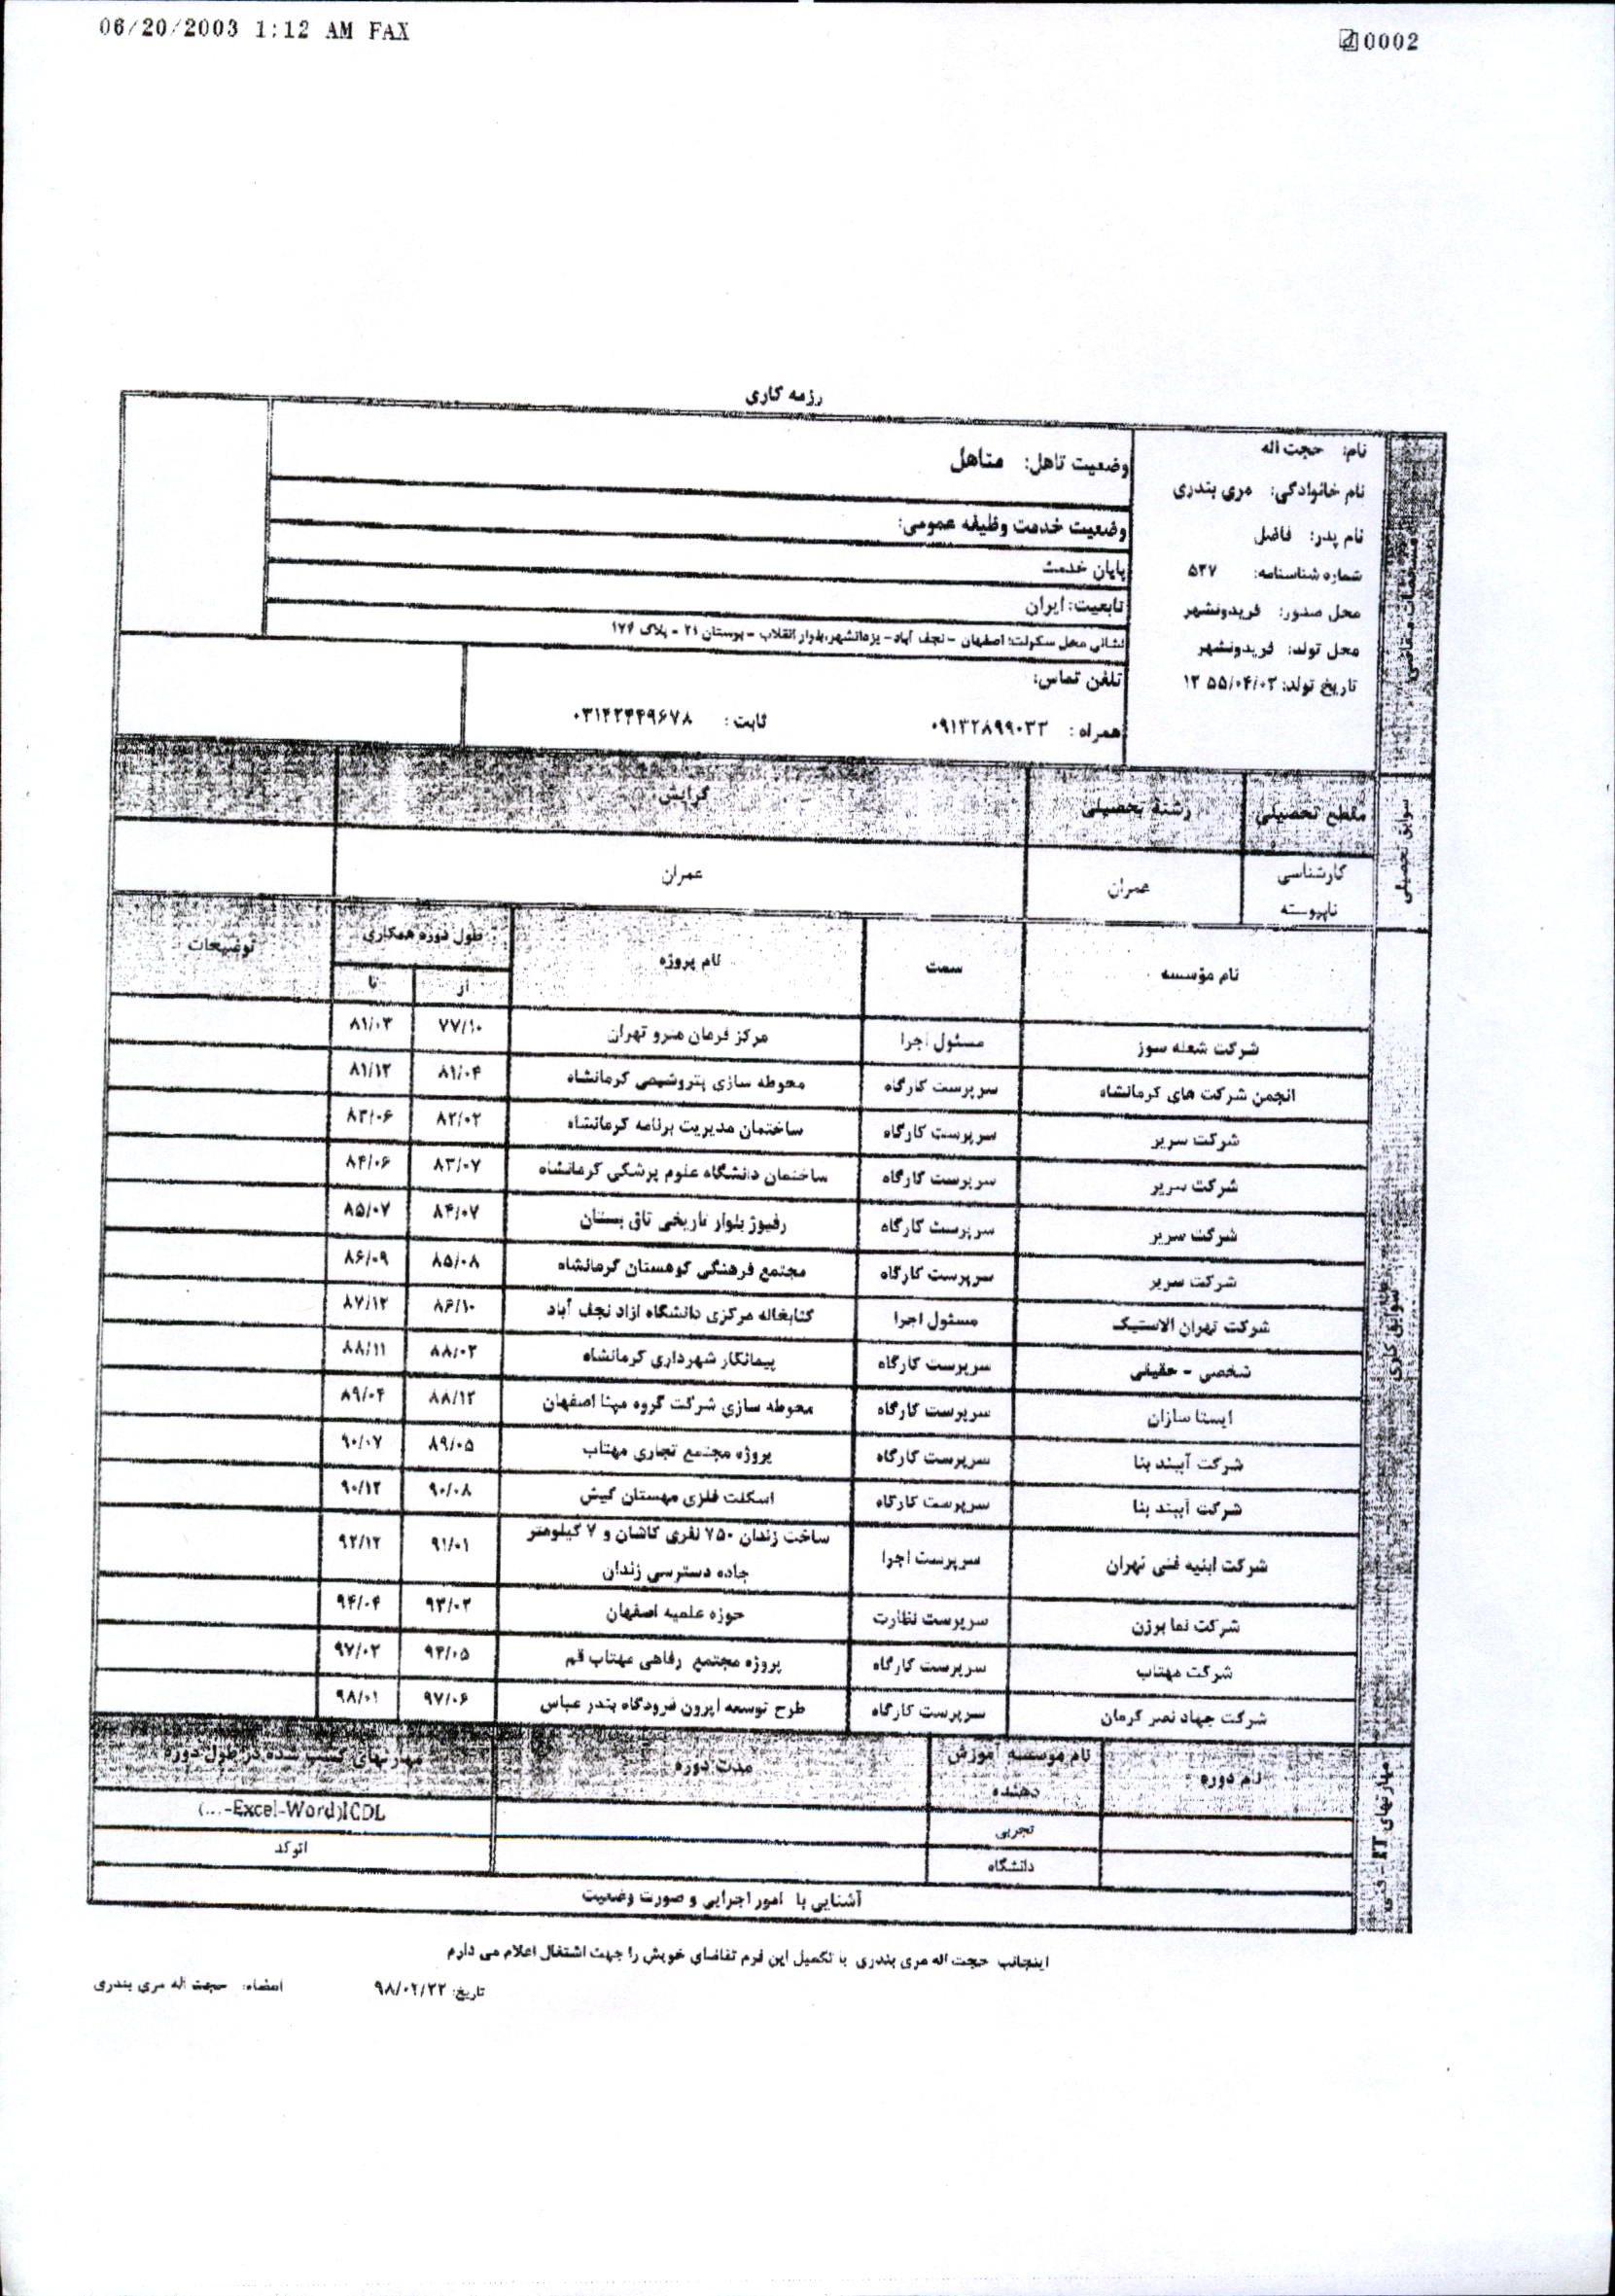 06/20/2003 1:12 AM FAX 0002
رزمه کاری
مشخصات متقاضی
نام: حجت اله
نام خانوادگی: مری بندری
نام پدر: فاضل
شماره شناسنامه: ۵۲۷
محل صدور: فریدونشهر
محل تولد: فریدونشهر
تاریخ تولد: ۱۳۵۵/۰۴/۰۲
وضعیت تاهل: متاهل
وضعیت خدمت وظیفه عمومی:
پایان خدمت
تابعیت: ایران
نشانی محل سکونت: اصفهان - نجف آباد - یزدانشهر، بلوار انقلاب - بوستان ۲۱ - پلاک ۱۷۶
تلفن تماس:
همراه: ۰۹۱۳۲۸۹۹۰۳۳ ثابت: ۰۳۱۴۲۴۴۹۶۷۸
سوابق تحصیلی
مقطع تحصیلی رشتهٔ تحصیلی گرایش
کارشناسی ناپیوسته عمران عمران
سوابق کاری
نام مؤسسه سمت نام پروژه طول دوره همکاری توضیحات
از تا
شرکت شعله سوز مسئول اجرا مرکز فرمان مترو تهران ۷۷/۱۰ ۸۱/۰۳
انجمن شرکت های کرمانشاه سرپرست کارگاه محوطه سازی پتروشیمی کرمانشاه ۸۱/۰۴ ۸۱/۱۲
شرکت سریر سرپرست کارگاه ساختمان مدیریت برنامه کرمانشاه ۸۲/۰۲ ۸۳/۰۶
شرکت سریر سرپرست کارگاه ساختمان دانشگاه علوم پزشکی کرمانشاه ۸۳/۰۷ ۸۴/۰۶
شرکت سریر سرپرست کارگاه رفیوژ بلوار تاریخی تاق بستان ۸۴/۰۷ ۸۵/۰۷
شرکت سریر سرپرست کارگاه مجتمع فرهنگی کوهستان کرمانشاه ۸۵/۰۸ ۸۶/۰۹
شرکت تهران الاستیک مسئول اجرا کتابخانه مرکزی دانشگاه ازاد نجف آباد ۸۶/۱۰ ۸۷/۱۲
شخصی - حقیقی سرپرست کارگاه پیمانکار شهرداری کرمانشاه ۸۸/۰۲ ۸۸/۱۱
ایستا سازان سرپرست کارگاه محوطه سازی شرکت گروه مپنا اصفهان ۸۸/۱۲ ۸۹/۰۴
شرکت آیند بنا سرپرست کارگاه پروژه مجتمع تجاری مهتاب ۸۹/۰۵ ۹۰/۰۷
شرکت آیند بنا سرپرست کارگاه اسکلت فلزی مهستان کیش ۹۰/۰۸ ۹۰/۱۲
شرکت ابنیه فنی تهران سرپرست اجرا ساخت زندان ۷۵۰ نفری کاشان و ۷ کیلومتر ۹۱/۰۱ ۹۲/۱۲
جاده دسترسی زندان
شرکت نما برزن سرپرست نظارت حوزه علمیه اصفهان ۹۳/۰۲ ۹۴/۰۴
شرکت مهتاب سرپرست کارگاه پروژه مجتمع رفاهی مهتاب قم ۹۴/۰۵ ۹۷/۰۲
شرکت جهاد نصر کرمان سرپرست کارگاه طرح توسعه اپرون فرودگاه بندر عباس ۹۷/۰۶ ۹۸/۰۱
مهارتهای IT - فنی
نام دوره نام موسسه آموزش دهنده مدت دوره مهارتهای کسب شده در طول دوره
تجربی (...-Excel-Word)ICDL
دانشگاه اتوکد
آشنایی با امور اجرایی و صورت وضعیت
اینجانب حجت اله مری بندری با تکمیل این فرم تقاضای خویش را جهت اشتغال اعلام می دارم
تاریخ: ۹۸/۰۲/۲۲ امضاء: حجت اله مری بندری